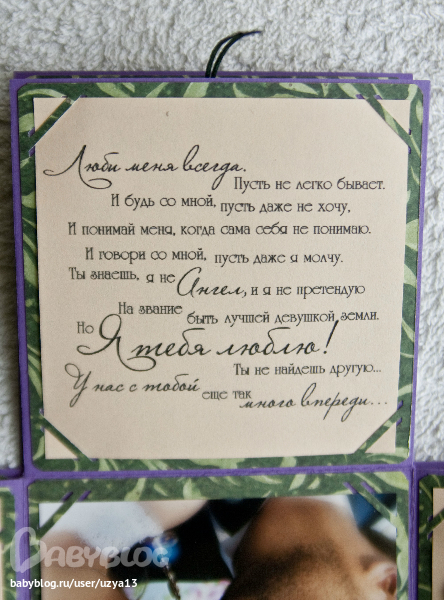 Люби меня всегда.
Пусть не легко бывает.
И будь со мной, пусть даже не хочу,
И понимай меня, когда сама себя не понимаю.
И говори со мной, пусть даже я молчу.
Ты знаешь, я не Ангел, и я не претендую
На звание быть лучшей девушкой земли.
Но Я тебя люблю!
Ты не найдешь другую...
У нас с тобой еще так много впереди...
BABYBLOG
babyblog.ru/user/uzya13